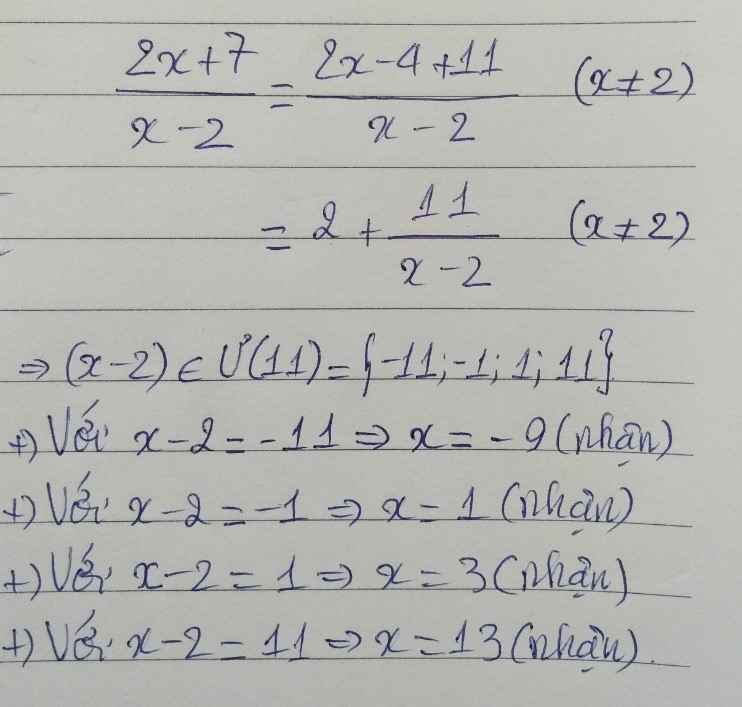 (2x+7)/(x-2) = (2x-4+11)/(x-2) (x≠2)
= 2 + 11/(x-2) (x≠2)
⇒ (x-2) ∈ Ư(11) = {-11; -1; 1; 11}
+) Với x-2 = -11 ⇒ x = -9 (nhận)
+) Với x-2 = -1 ⇒ x = 1 (nhận)
+) Với x-2 = 1 ⇒ x = 3 (nhận)
+) Với x-2 = 11 ⇒ x = 13 (nhận).